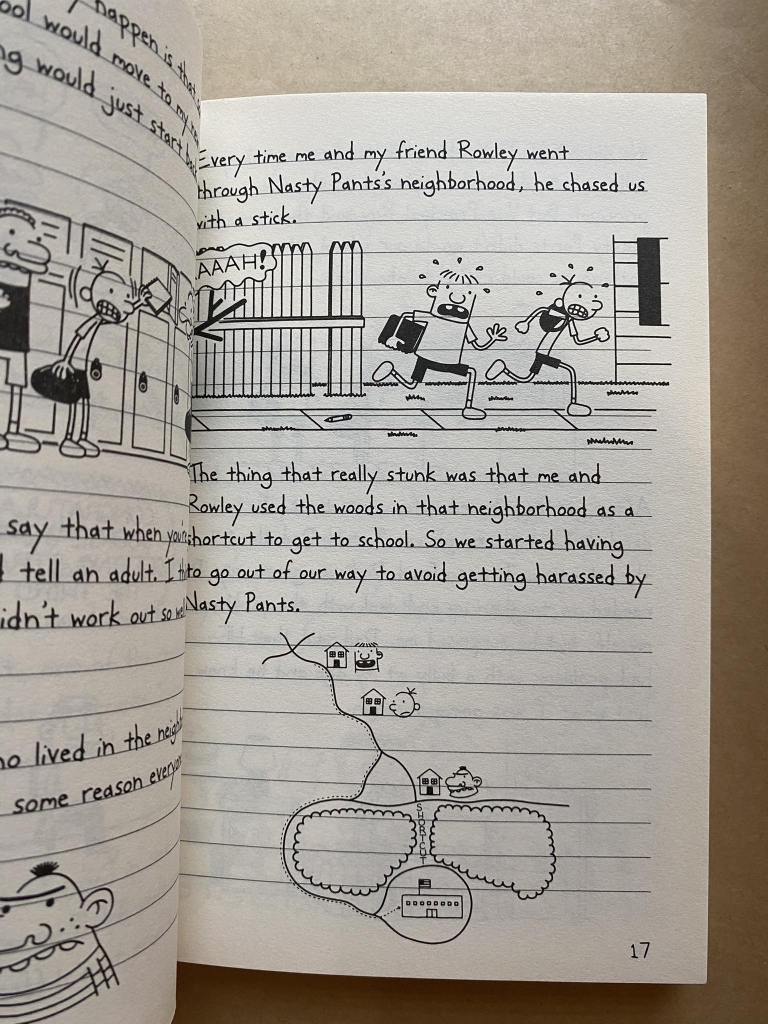 happen is that
would move to my
would just start
say that when you're
tell an adult. I
didn't work out so
lived in the
some reason
Every time me and my friend Rowley went
through Nasty Pants's neighborhood, he chased us
with a stick.
AAAH!
The thing that really stunk was that me and
Rowley used the woods in that neighborhood as a
shortcut to get to school. So we started having
to go out of our way to avoid getting harassed by
Nasty Pants.
SHORTCUT
17